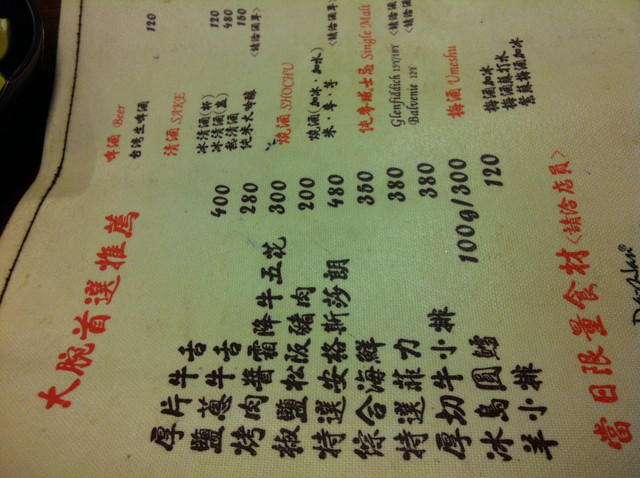 大腕首選推薦
厚片牛舌 400
鹽蔥牛舌 280
烤肉醬霜降牛五花 300
椒鹽松阪豬肉 200
特選安格斯莎朗 480
綜合海鮮 350
特選菲力 380
厚切牛小排 380
冰島圓鱈 100g/300
羊小排 120
當日限量食材<請洽店員>
啤酒 Beer
台湾生啤酒 120
清酒 SAKE
冰清酒(杯) 120
冰清酒(壺) 480
熱清酒 150
純米大吟釀 <請洽酒單>
燒酒 SHOCHU
燒酒(加冰・加水) <請洽酒單>
米・麥・芋
純麥威士忌 Single Malt
Glenfiddich 15Y/18Y <請洽酒
Balvenie 12Y <請洽酒
梅酒 Umeshu
梅酒加冰
梅酒蘇打水
紫蘇梅酒加冰